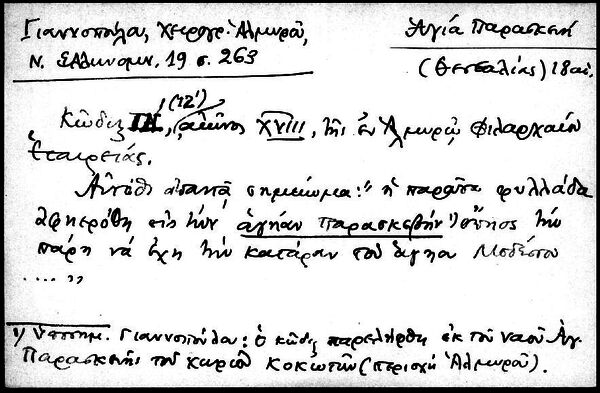 Γιαννοπούλου, Χειρόγρ. Ἁλμυροῦ,
Ν. Ἑλληνομν. 19 σ. 263
Ἁγία Παρασκευή
(Θεσσαλίας) 18 αἰ.
Κῶδιξ (ΙΖ') αἰῶνος XVIII, τῆς ἐν Ἁλμυρῷ Φιλαρχαίου
Ἑταιρείας.
Αὐτόθι ἀπαντᾷ σημείωμα: " ἡ παροῦσα φυλλάδα
ἀφηερόθη εἰς τὴν ἁγήαν Παρασκεβήν 1) ὅπηος τὴν
πάρη νά ἔχη τὴν κατάραν τοῦ ἁγηου Μοδέστου
.... "
1) Ὑποσημ. Γιαννοπούλου: ὁ κῶδιξ παρελήφθη ἐκ τοῦ ναοῦ Ἁγ.
Παρασκευῆς τοῦ χωριοῦ Κοκωτῶν (περιοχή Ἁλμυροῦ).